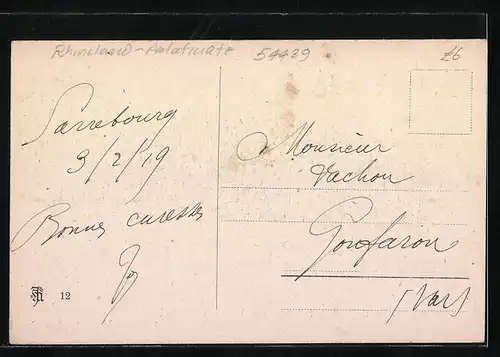 Rhineland-Palatinate 54439 £6
Sarrebourg
3/2/19
Bonnes caresses
12
Monsieur
Vachon
Gonfaron
(Var)